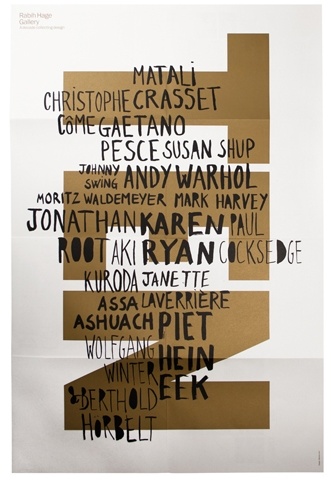 Rabih Hage
Gallery
MATALI
CHRISTOPHE CRASSET
CÔME GAETANO
PESCE SUSAN SHUP
JOHNNY SWING ANDY WARHOL
MORITZ WALDEMEYER MARK HARVEY
JONATHAN KAREN PAUL
ROOT AKI RYAN COCKSEDGE
KURODA JANETTE
ASSA LAVERRIÈRE
ASHUACH PIET
WOLFGANG HEIN
WINTER EEK
& BERTHOLD
HÖRBELT